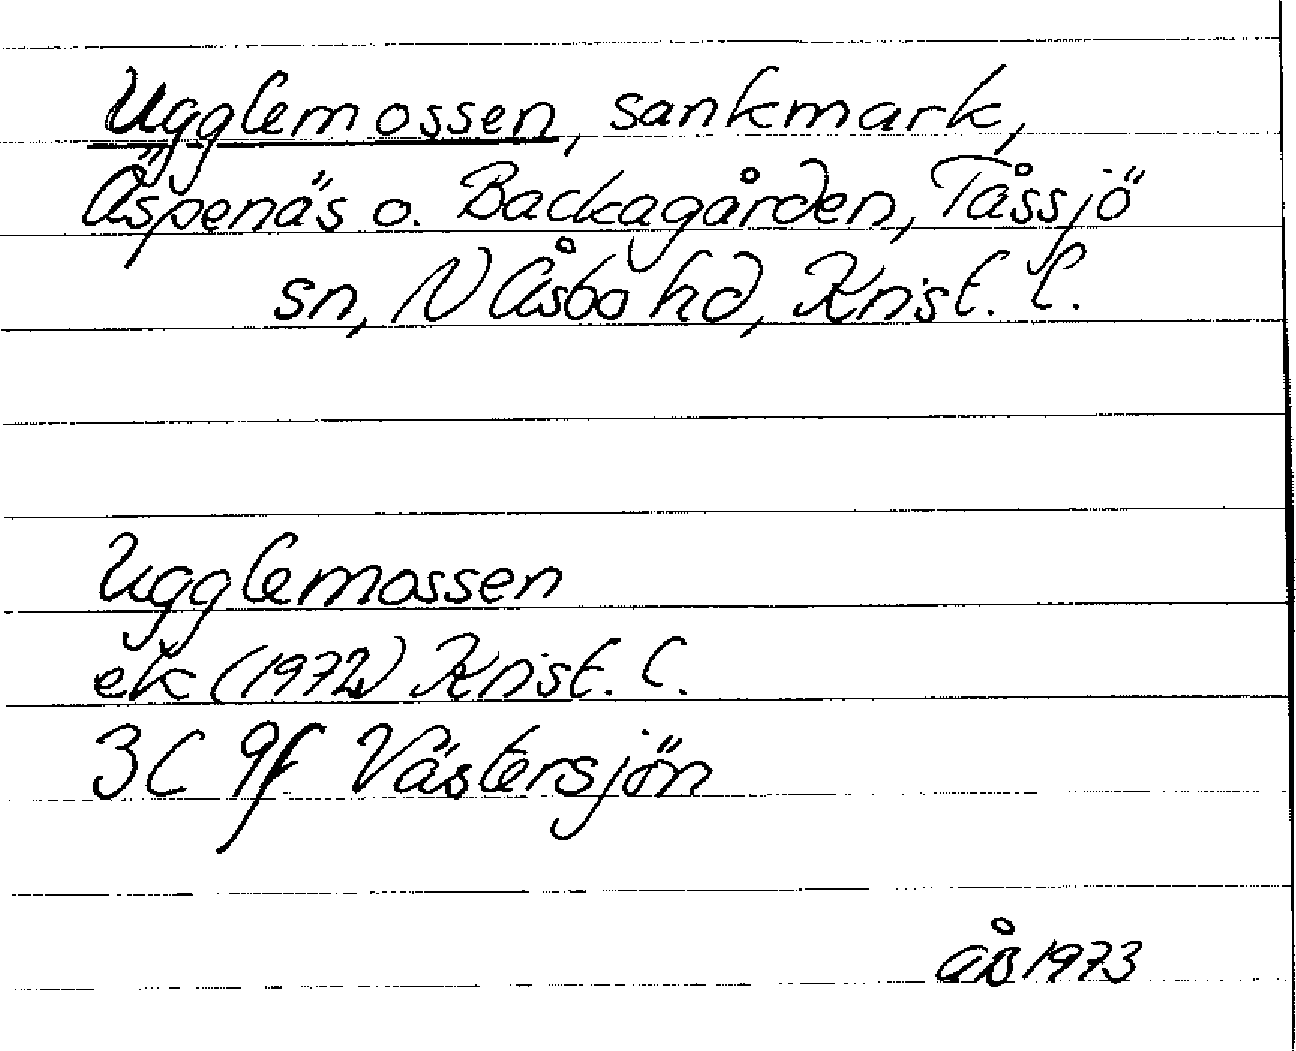 Ugglemossen, sankmark,
Äspenäs o. Backagården, Tåssjö
sn, N Åsbo hd, Krist. l.
Ugglemossen
ek (1972) Krist. l.
3C 9f Västersjön
ÅB 1973